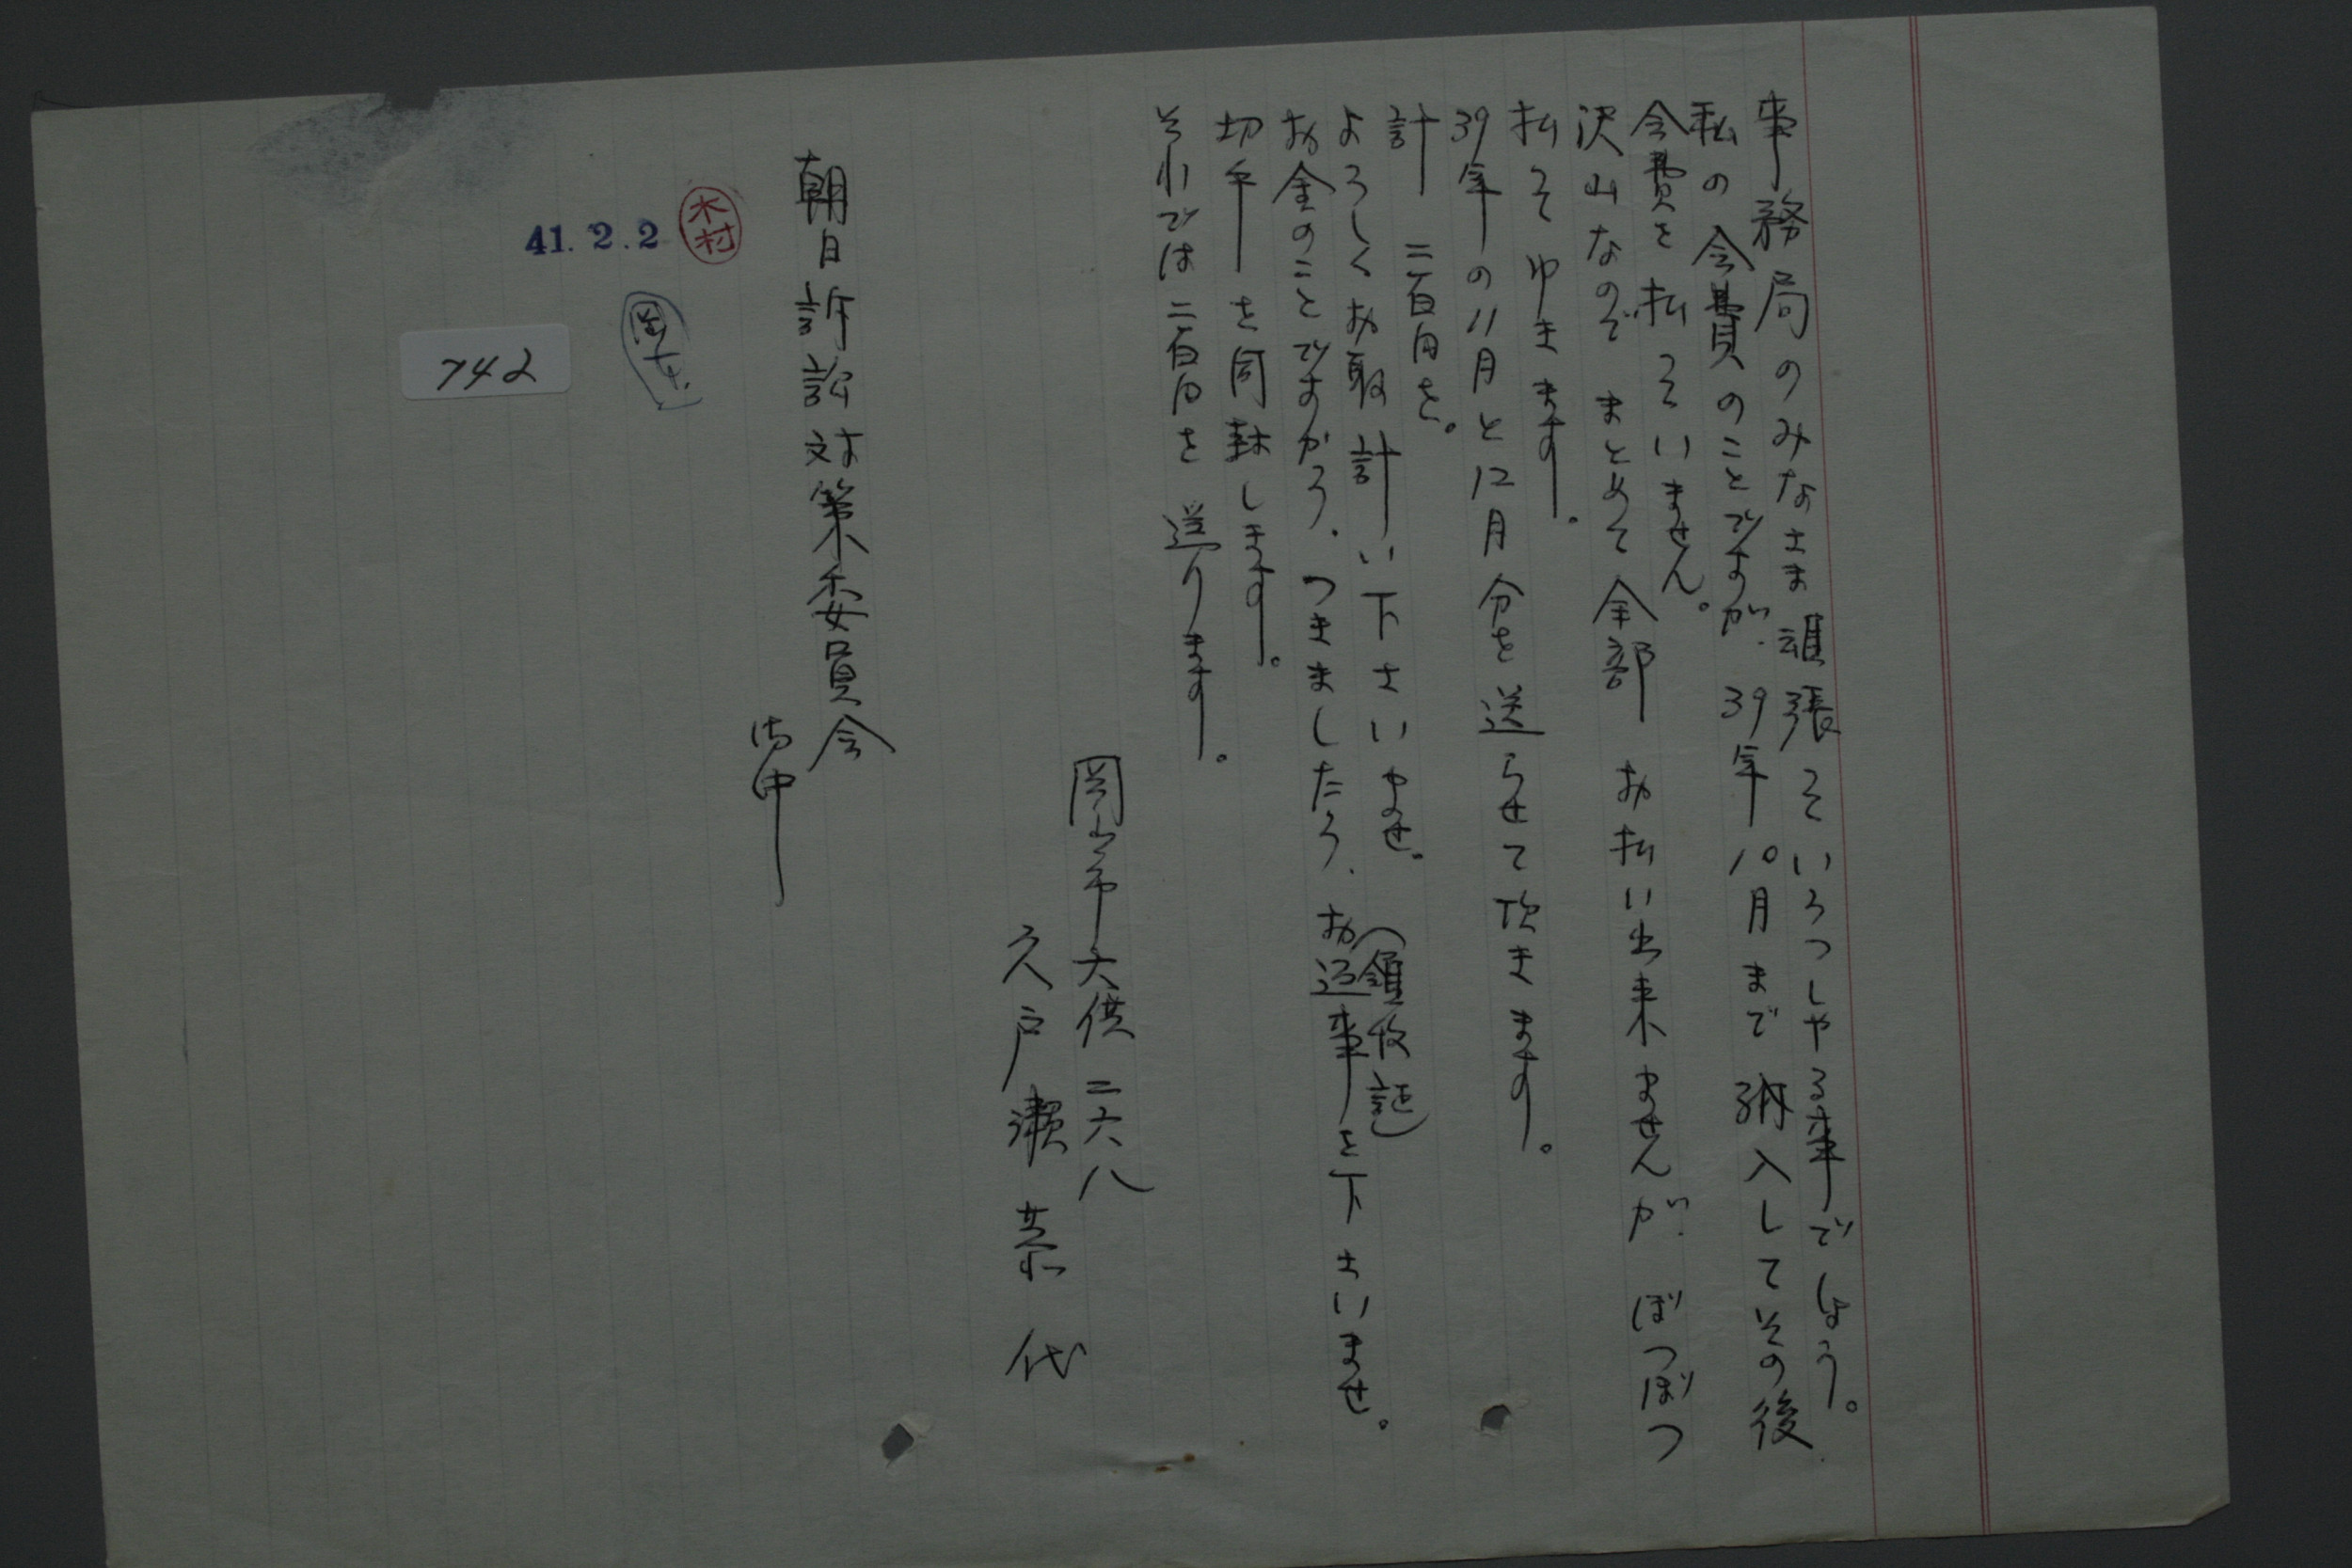 事務局のみなさま頑張っていらっしゃる事でしょう。
私の会費のことですが、39年10月まで納入してその後
会費を払っていません。
沢山なのでまとめて全部お払い出来ませんが、ぼつぼつ
払ってゆきます。
39年の11月と12月分を送らせて頂きます。
計 二百円を。
よろしくお取計い下さいませ。(領收証)
お金のことですから、つきましたら、お返事を下さいませ。
切手を同封します。
それでは二百円を送ります。
岡山市大供二六八
久戸瀬恭代
朝日訴訟対策委員会
御中
木村
41.2.2
742